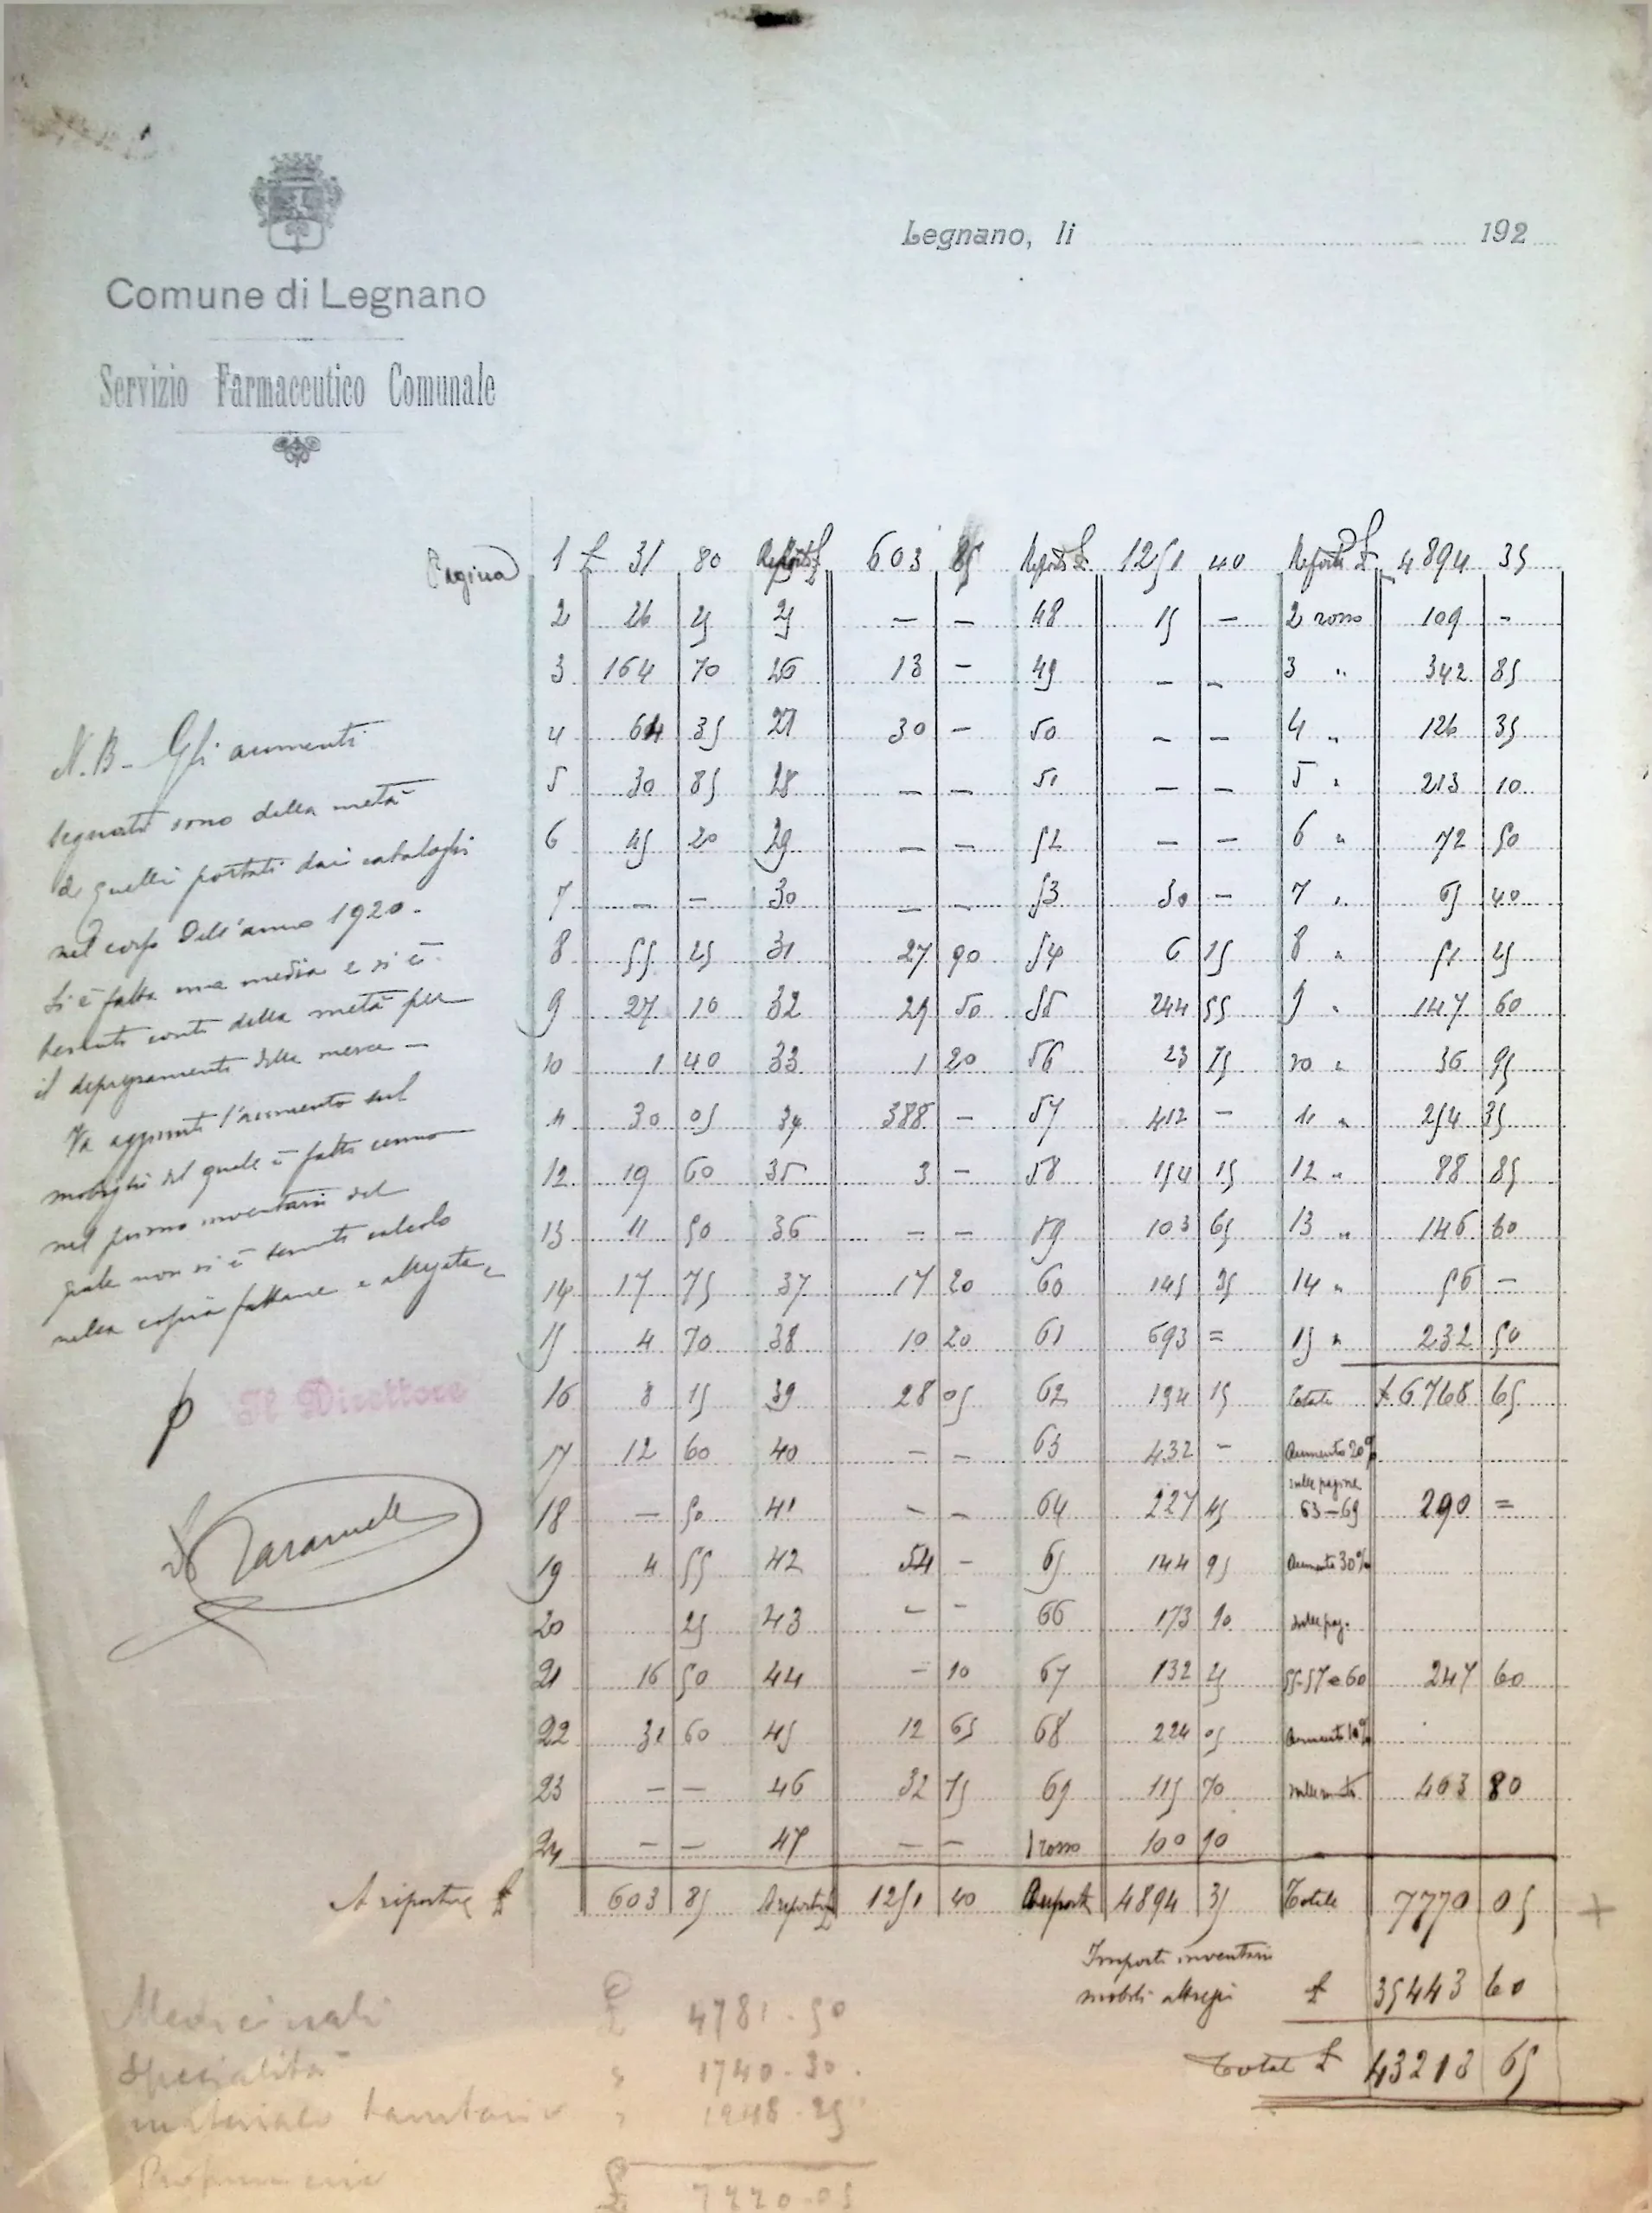 Legnano, li 192
Comune di Legnano
Servizio Farmaceutico Comunale
Pagina 1 £ 31 80 Riporto £ 603 85 Riporto £ 1251 40 Riporto £ 4894 35
2 26 25 25 — — 48 15 — 2 rosso 109 -
3 164 70 26 13 — 49 — — 3 " 342 85
4 64 35 27 30 — 50 — — 4 " 126 35
5 30 85 28 — — 51 — — 5 " 213 10
6 45 20 29 — — 52 — — 6 " 72 50
7 — — 30 — — 53 30 — 7 " 65 40
8 55 25 31 27 90 54 6 15 8 " 51 25
9 27 10 32 29 50 55 244 55 9 " 147 60
10 1 40 33 1 20 56 23 75 10 " 36 95
11 30 05 34 388 — 57 412 — 11 " 254 35
12 19 60 35 3 — 58 154 15 12 " 88 85
13 11 50 36 — — 59 103 65 13 " 146 60
14 17 75 37 17 20 60 145 35 14 " 56 —
15 4 70 38 10 20 61 693 = 15 " 232 50
16 8 15 39 28 05 62 194 15 Totale £ 6768 65
17 12 60 40 — — 63 432 - Aumento 20%
sulle pagine
18 — 50 41 — — 64 227 45 63-69 290 =
19 4 55 42 54 - 65 144 95 Aumento 30%
20 25 43 — — 66 173 90 sulle pag.
21 16 50 44 — 10 67 132 25 55-57 e 60 247 60
22 31 60 45 12 65 68 224 05 Aumento 10%
23 — — 46 32 75 69 115 70 463 80
24 — — 47 — — 1 rosso 100 90
A riportare £ 603 85 A riportare £ 1251 40 A riportare 4894 35 Totale 7770 05 +
Importo inventario
mobili £ 35443 60
Total £ 43213 65
N.B - Gli aumenti
segnati sono della metà
di quelli portati dai cataloghi
nel corso dell'anno 1920.
Si è fatta una media e si è
tenuto conto della metà per
il deprezzamento della merce —
Va aggiunto l'aumento sul
mobiglio del quale è fatto cenno
nel primo inventario del
quale non si è tenuto calcolo
nella copia fattane e allegata
p Il Direttore
Medicinali £ 4781.50
Specialità " 1740.30.
materiale sanitario " 1248.25
Profumeria
£ 7770.05